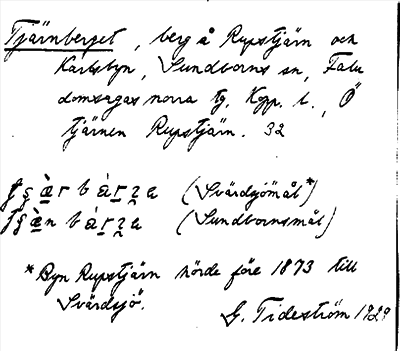 Tjärnberget, berg å Rupstjärn och
Karlsbyn, Sundborns sn, Falu
domsagas norra tg, Kopp. l., Ö
tjärnen Rupstjärn. 32
(Svärdsjömål*)
(Sundbornsmål)
*Byn Rupstjärn hörde före 1873 till
Svärdsjö.
G. Tideström 1929